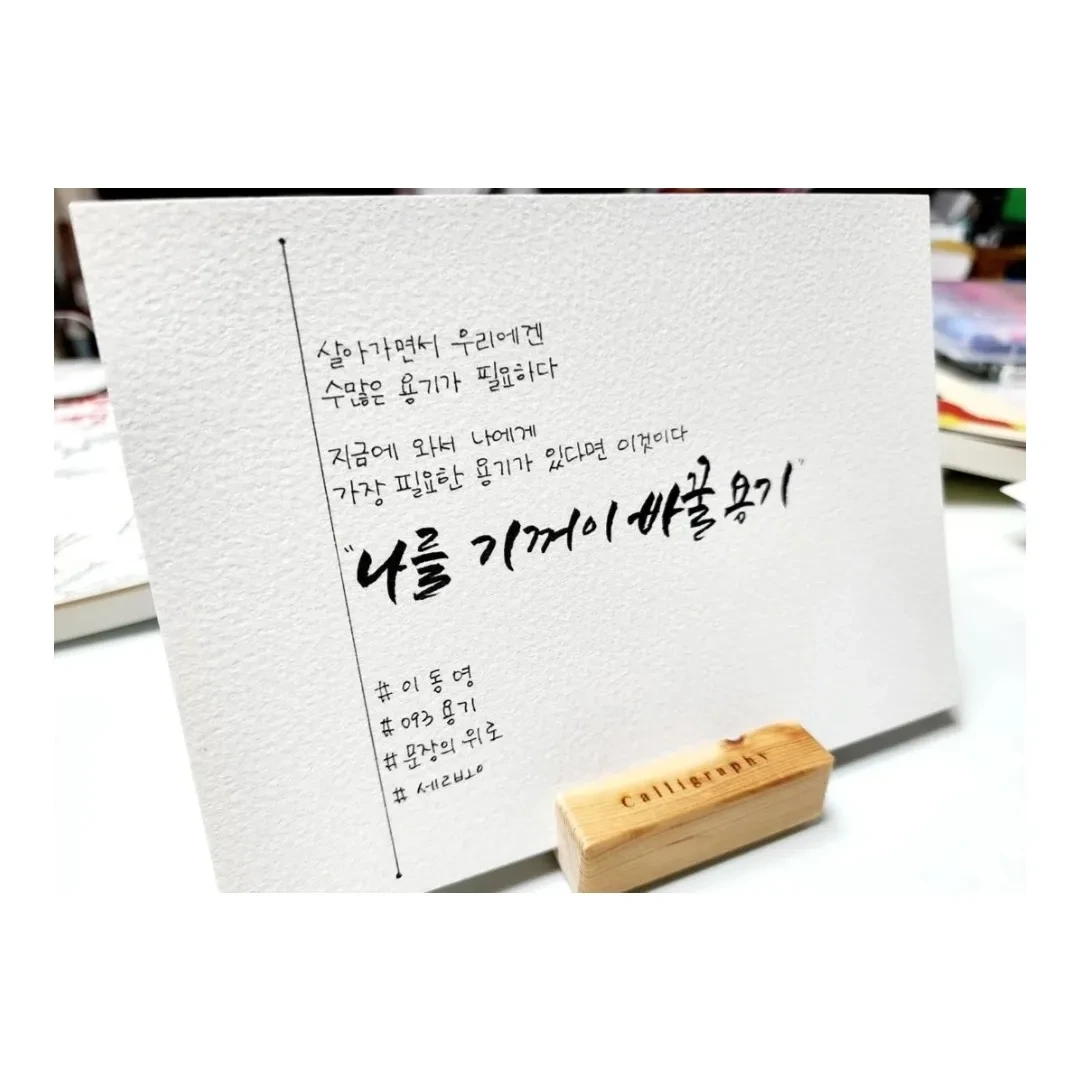 살아가면서 우리에겐
수많은 용기가 필요하다
지금에 와서 나에게
가장 필요한 용기가 있다면 이것이다
"나를 기꺼이 바꿀 용기"
# 이동영
# 093 용기
# 문장의 위로
# 세르보
Calligraphy